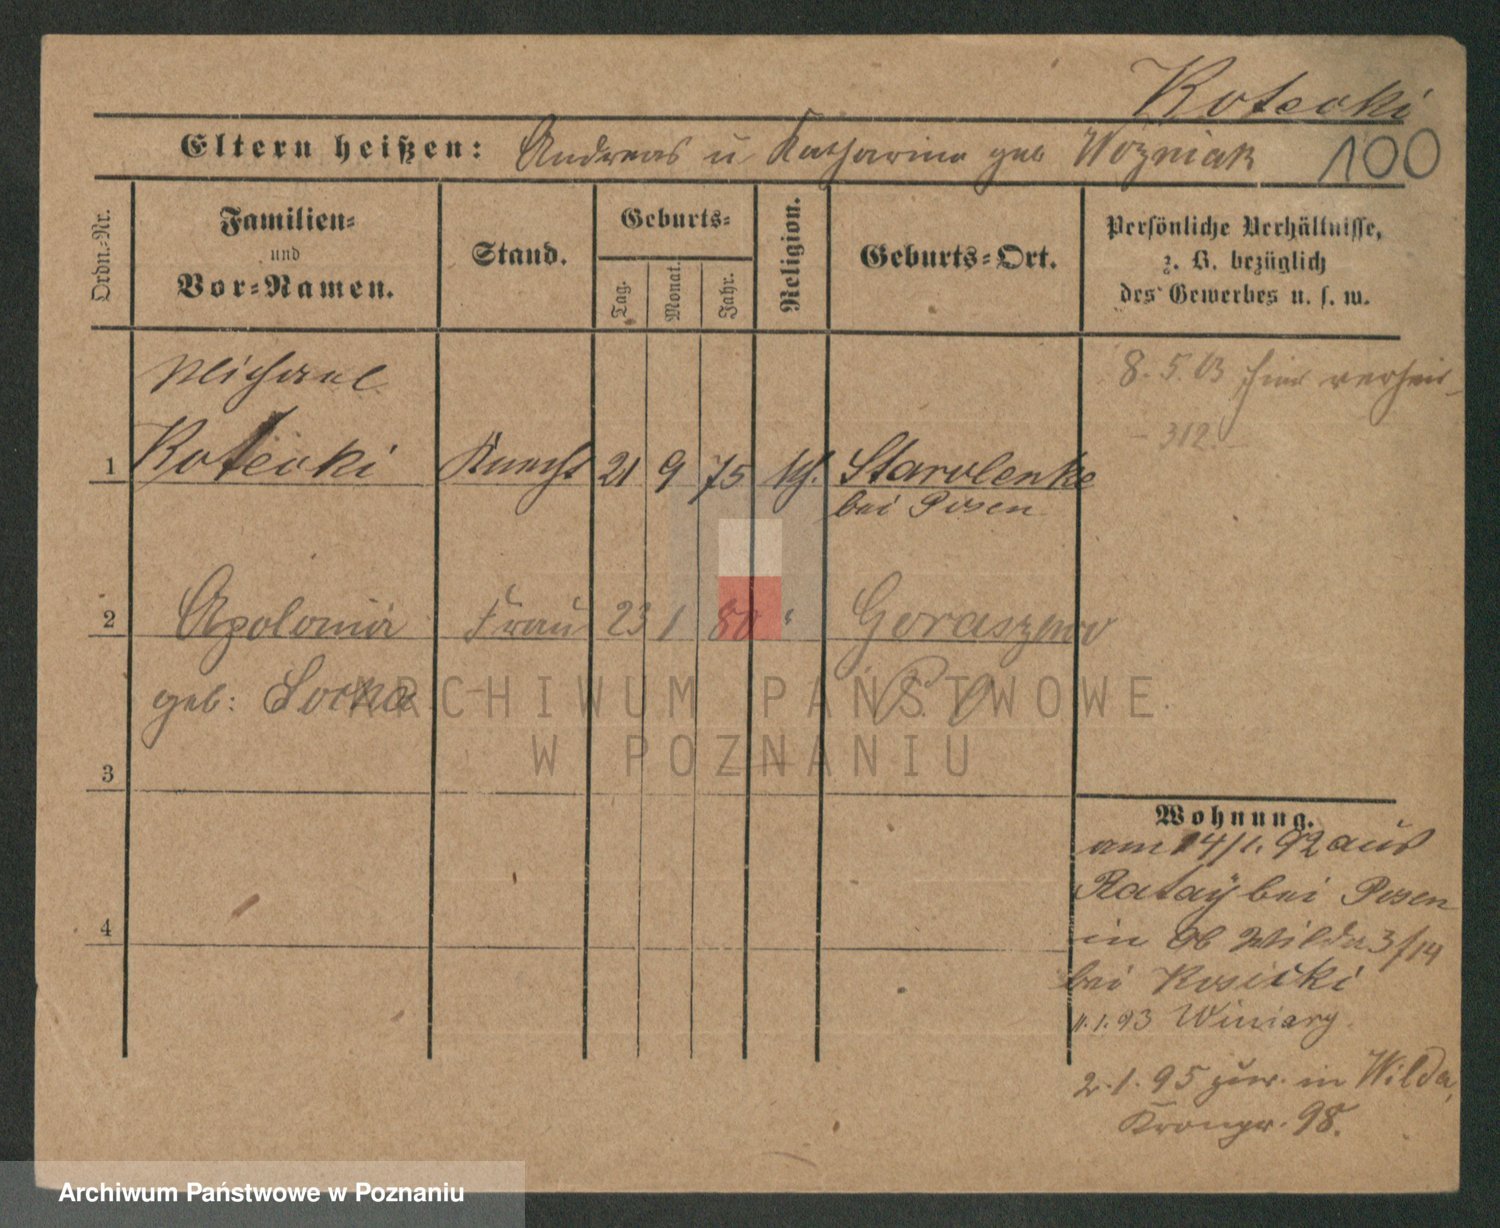 Kotecki
Eltern heißen: Andreas u Katharina geb Woźniak 100
Ordn.=Nr.
Familien=
und
Vor=Namen.
Stand.
Geburts=
Tag.
Monat.
Jahr.
Religion.
Geburts=Ort.
Persönliche Verhältnisse,
z. B. bezüglich
des Gewerbes u. s. w.
Michael
8. 5. 03 hier verheir
- 312. -
1 Kotecki Knecht 21 9 75 kh. Starolenke
bei Posen
2 Apolonia Frau 23 1 80 " Goraszewo
geb:
3
4
Wohnung.
am 14/1. 92 aus
Rataÿ bei Posen
in Ob Wilda 3/14
bei Kosicki
11. 1. 93 Winiary.
2. 1. 95 zur. in Wilda,
Kronpr. 98.
ARCHIWUM PAŃSTWOWE
W POZNANIU
Archiwum Państwowe w Poznaniu